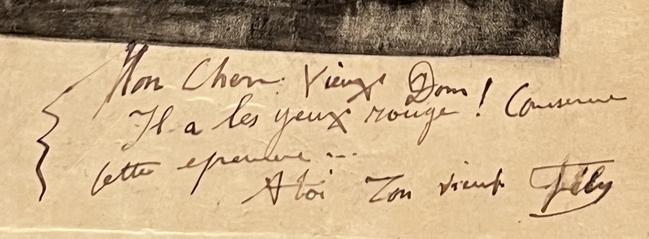 Mon Cher Vieux Dom!
Il a les yeux rouge! Conserve
cette epreuve ...
A toi Ton vieux Fély